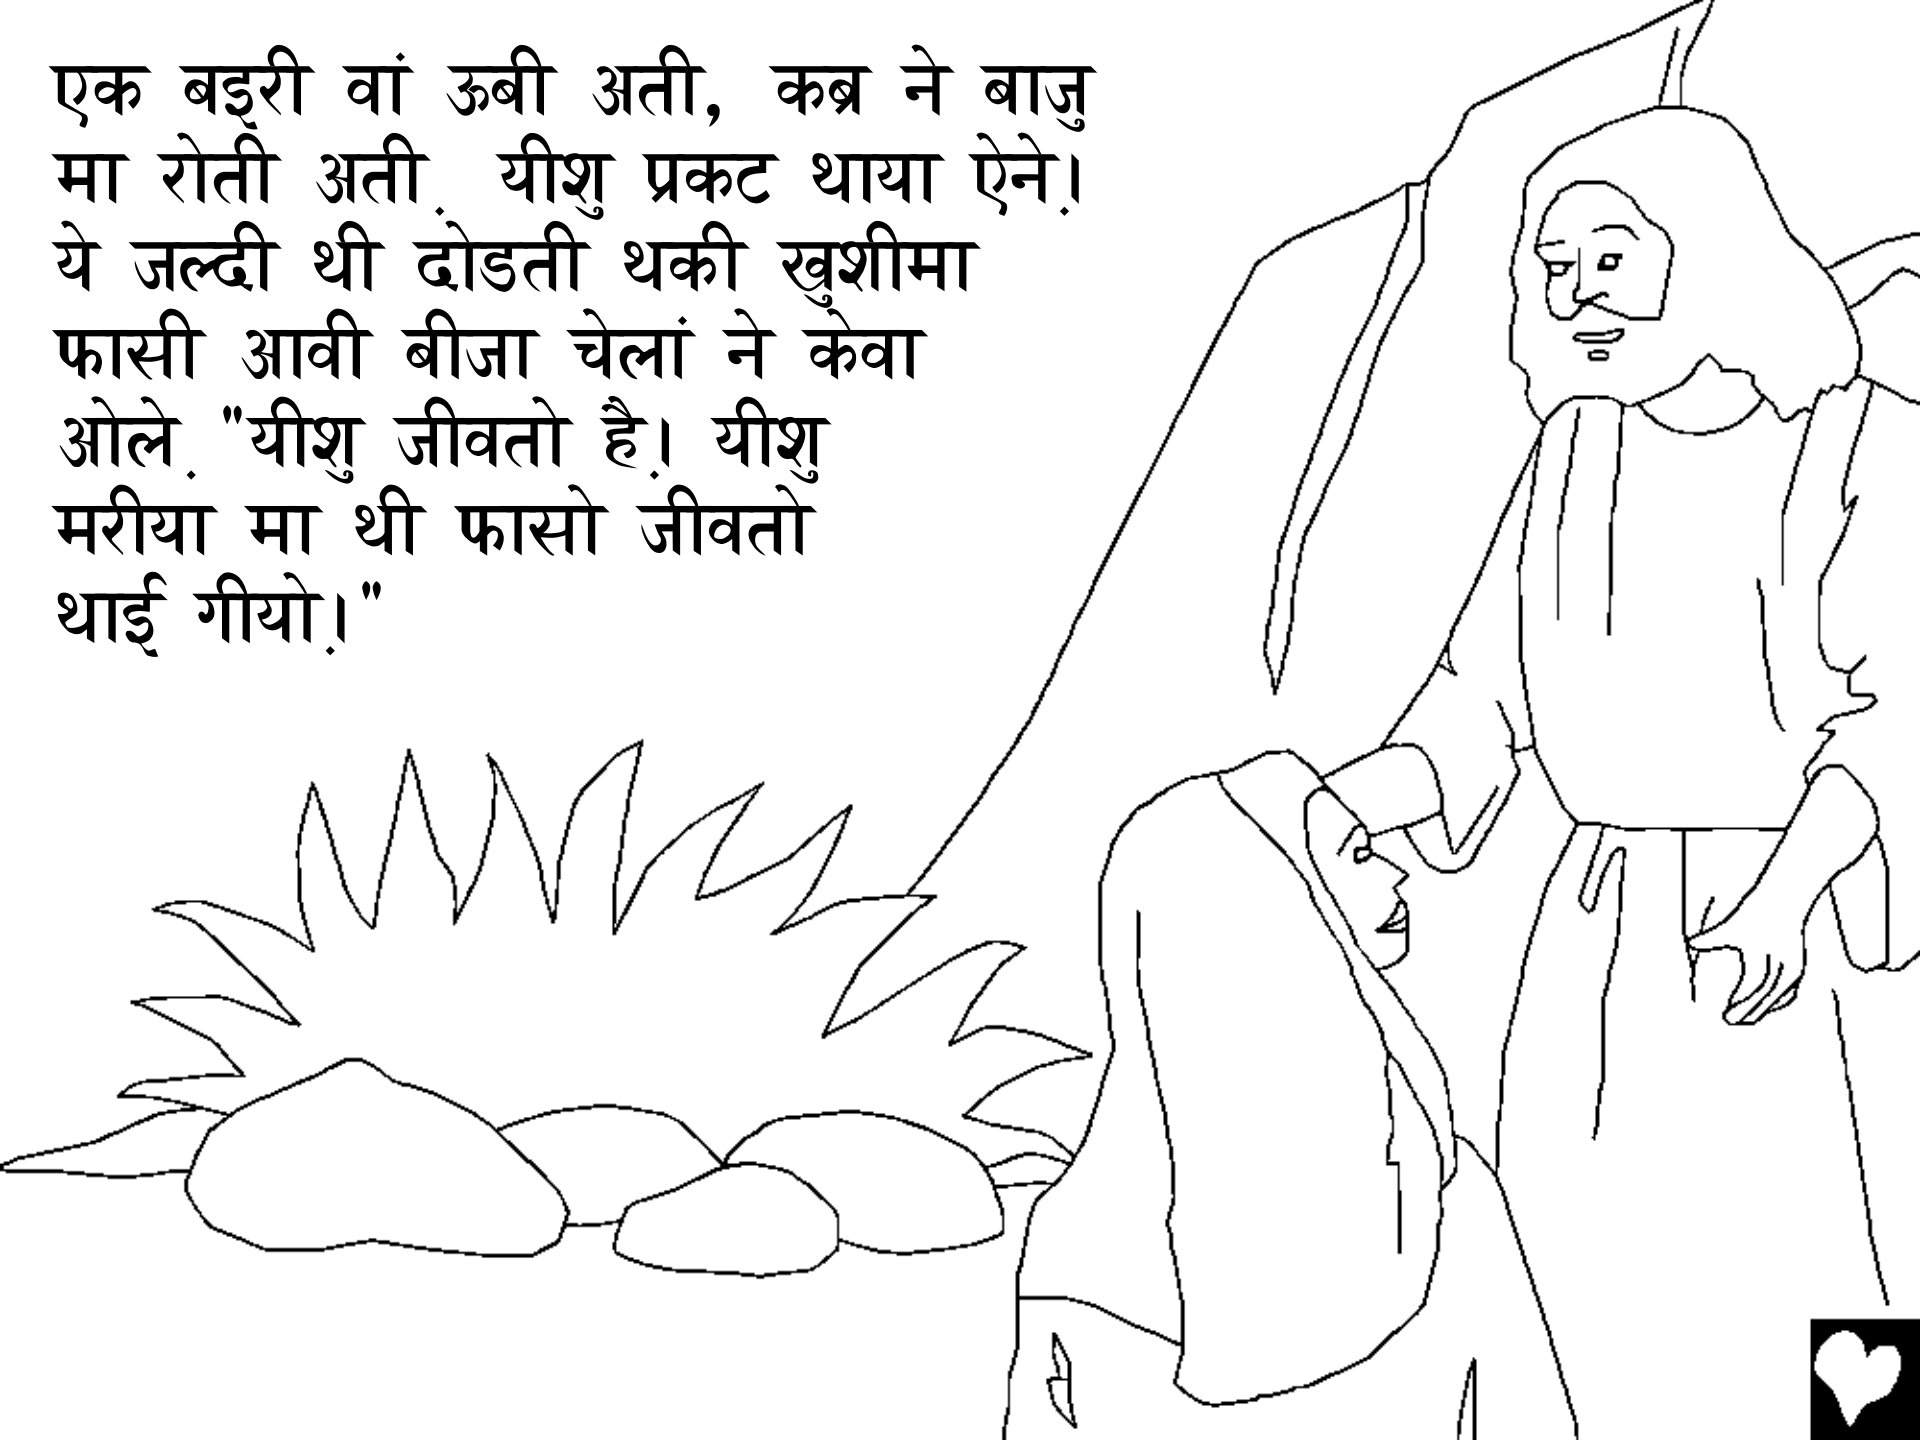 एक बइरी वां ऊबी अती, कब्र ने बाजु
मा रोती अती. यीशु प्रकट थाया ऐने।.
ये जल्दी थी दोडती थकी खुशीमा
फासी आवी बीजा चेलां ने केवा
ओले. "यीशु जीवतो है।. यीशु
मरीया मा थी फासो जीवतो
थाई गीयो।."